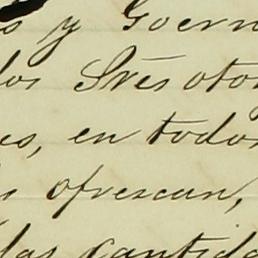 s y Goern
los Sres oto
es, en todos
e ofrescan,
las cantida